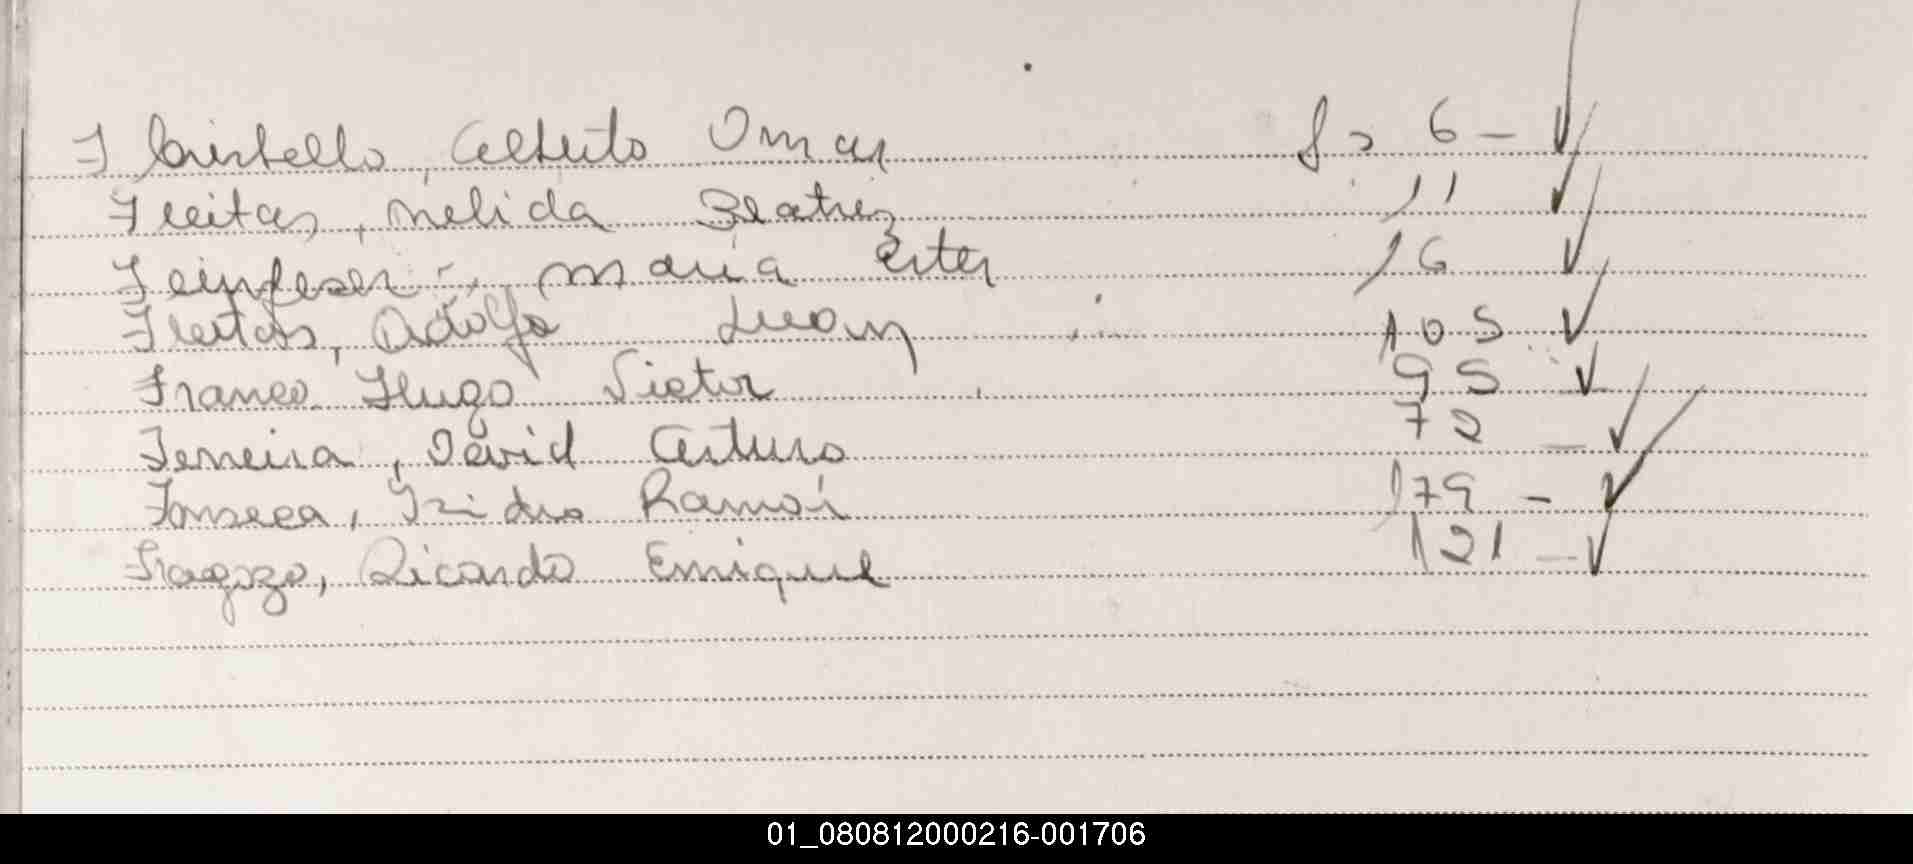 Alberto Omar f> 6 - ✓
Freitas, Nélida Beatriz 11 ✓
María Ester 16 ✓
Freitas, Adolfo Juan 105 ✓
Franco Hugo Victor 95 ✓
Ferreira, David Arturo 72 - ✓
Fonseca, Izidro Ramón 179 - ✓
Fragozo, Ricardo Enrique 121 - ✓
01_080812000216-001706